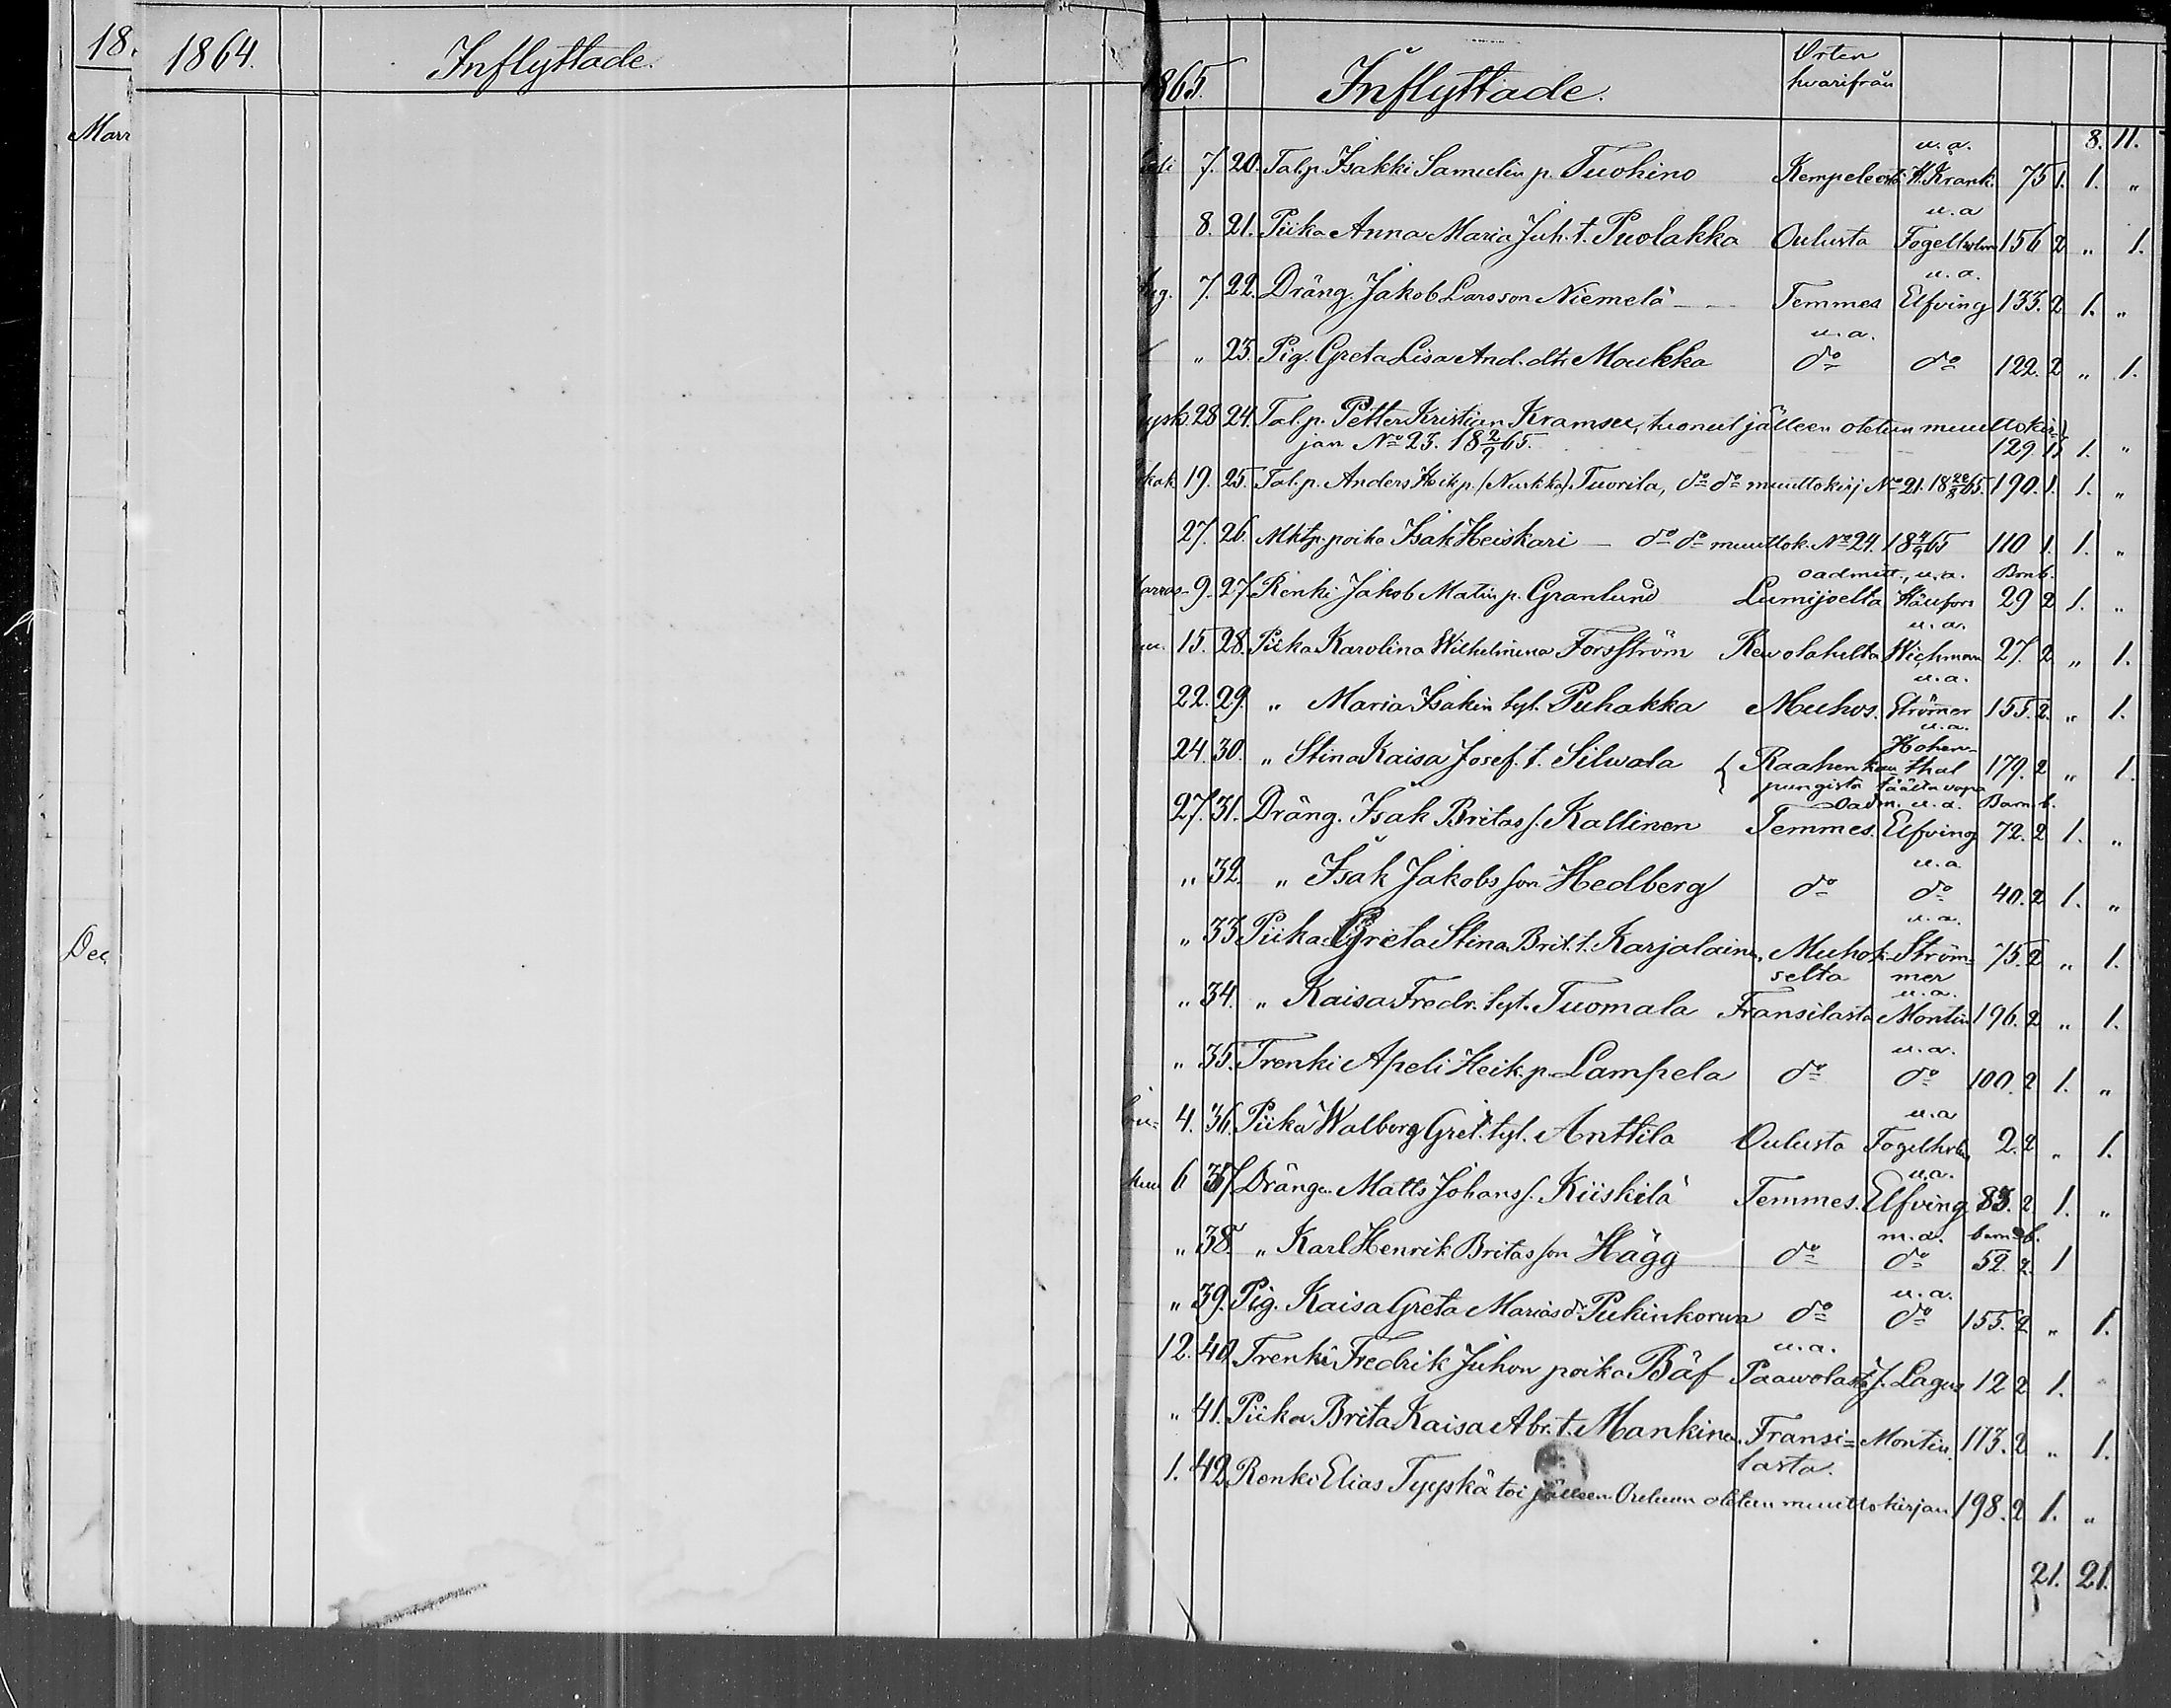 18
Marr
Dec
1864. Inflyttade.
865. Inflyttade. Orten hvarifrån
8. 11.
u. a.
7. 20. Talp. Isakki Samulin p. Tuohino Kempeleestä H. Krank. 75 1. 1. "
u. a
8. 21. Piika Anna Maria Juh. t. Puolakka Oulusta Fogelholm 156 2 " 1.
u. a.
7. 22. Dräng. Jakob Larsson Niemelä Temmes Elfving 133. 2 1. "
u. a.
" 23. Pig. Greta Lisa And. dtr Moukka do do 122. 2 " 1.
28 24. Tal. p. Petter Kristian Kramsu, tuonut jälleen otetun muuttokir=
jan No 23. 18 2/9 65. 129. 1. "
19. 25. Tal. p. Anders Heik p. (Nurkka) Tuorila, do do muuttokirj No 21. 18 22/8 65. 190. 1. 1. "
27. 26. Mktp. poika Isak Heiskari — do do muuttok. No 24. 18 4/9 65 110 1. 1. "
oadmitt., u. a. Bmb.
9. 27. Renki Jakob Matin p. Granlund Lumijoelta Häufors 29 2 1. "
u. a.
15. 28. Piika Karolina Wilhelmina Forsström Rewolahelta Wichman 27. 2. " 1.
u. a.
22. 29. " Maria Isakin tyt. Puhakka Muhos. Strömer 155. 2. " 1.
u. a.
24. 30. " Stina Kaisa Josef. t. Silwala { Raahen kau Hohen-
thal 179. 2 " 1.
pungista täältä vapa
Oadm. u. a. Barn. b.
27. 31. Dräng. Isak Britas s. Kallinen Temmes. Elfving 72. 2 1. "
u. a
" 32. " Isak Jakobs son Hedberg do do 40. 2 1. "
u. a.
" 33 Piika Greta Stina Brit. t. Karjalain. Muhok- Ström= 75. 2 " 1.
selta mer
u. a.
" 34. " Kaisa Fredr. tyt. Tuomala Fransilasta Montin 196. 2 " 1.
u. a.
" 35. Trenki Apeli Heik. p. Lampela do do 100. 2 1. "
u. a
4. 36. Piika Walborg Gret. tyt. Anttila Oulusta Fogelholm 2. 2 " 1.
u. a.
6 37 Drängen Matts Johans s. Kiiskilä Temmes. Elfving 83. 2. 1. "
m. a. barn b.
" 38. " Karl Henrik Britas son Hägg do do 52. 2. 1
u. a.
" 39. Pig. Kaisa Greta Marias dr Pukinkorwa do do 155. 2 " 1.
u. a.
12. 40. Trenki Fredrik Juhon poika Bäf Paawolasta J. Lagus 12 2 1.
" 41. Piika Brita Kaisa Abr. t. Mankinen. Fransi= Montin. 113. 2 " 1.
lasta.
1. 42. Renki Elias Tyyskä toi jälleen Ouluun otetun muuttokirjan 198. 2 1. "
21. 21.